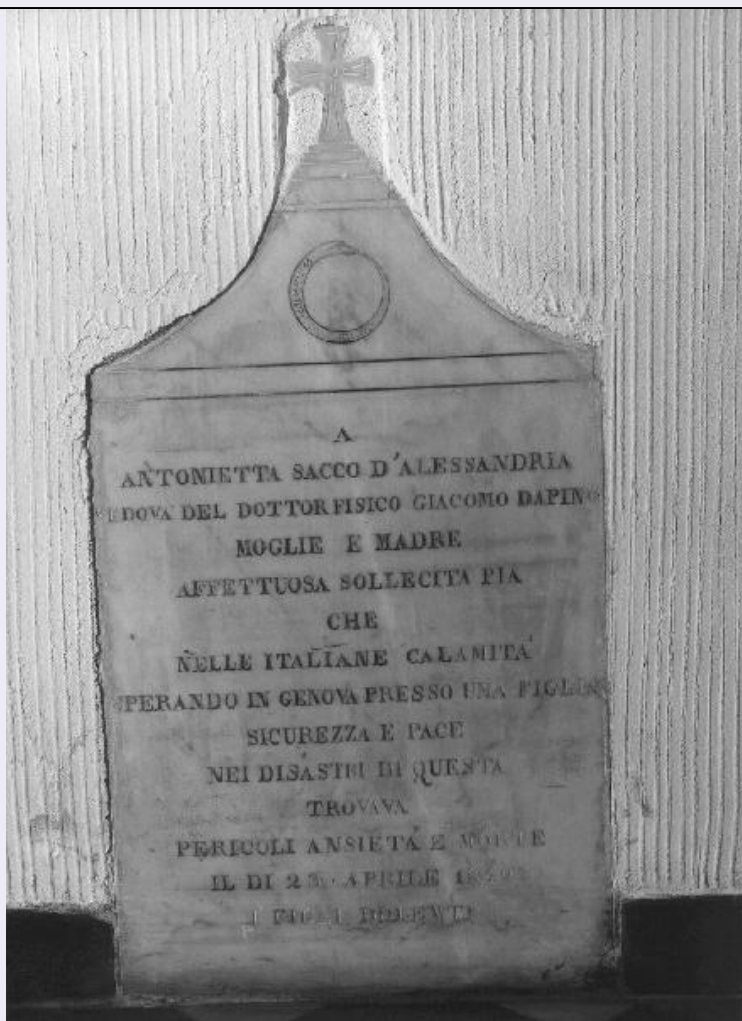 A
ANTONIETTA SACCO D'ALESSANDRIA
VEDOVA DEL DOTTOR FISICO GIACOMO DAPINO
MOGLIE E MADRE
AFFETTUOSA SOLLECITA PIA
CHE
NELLE ITALIANE CALAMITÀ
SPERANDO IN GENOVA PRESSO UNA FIGLIA
SICUREZZA E PACE
NEI DISASTRI DI QUESTA
TROVAVA
PERICOLI ANSIETÀ E MORTE
IL DI 23 · APRILE
I FIGLI DOLENTI